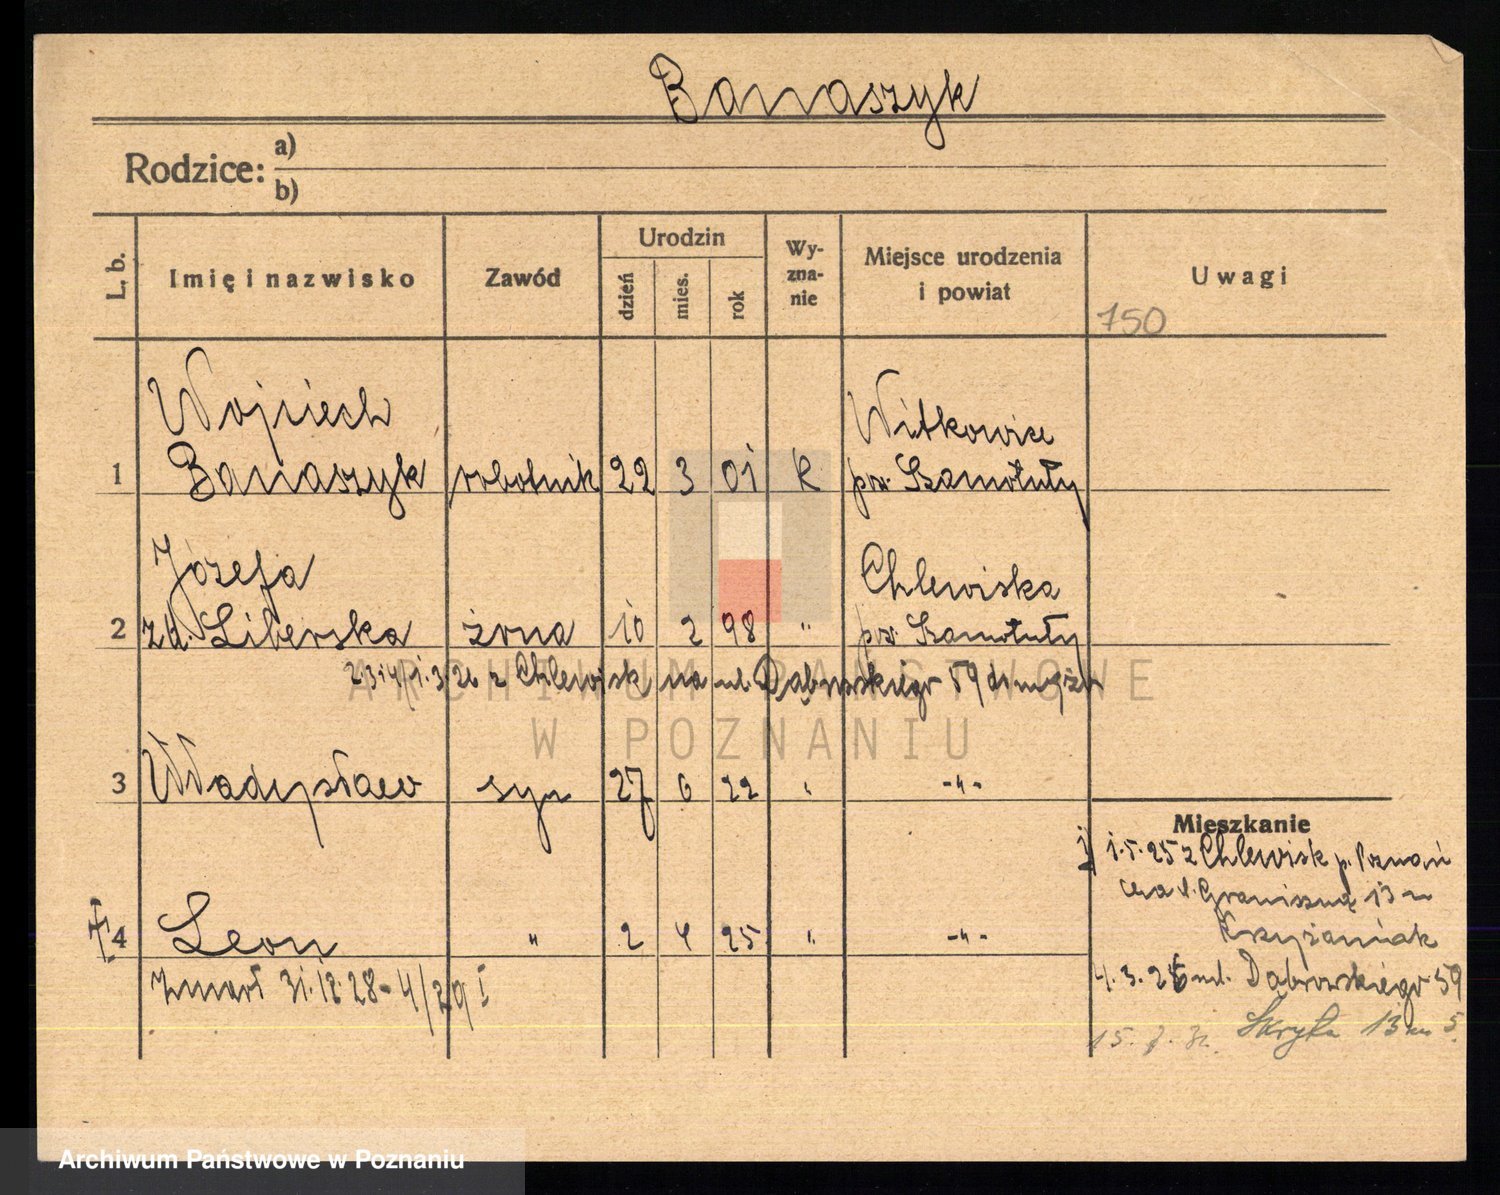 Banaszyk
Rodzice: a)
b)
L. b.
Imię i nazwisko
Zawód
Urodzin
dzień
mies.
rok
Wy-
zna-
nie
Miejsce urodzenia
i powiat
Uwagi
750
Wojciech
Witkowice
1 Banaszyk robotnik 22 3 01 K pow. Szamotuły
Józefa
Chlewiska
2 zd. Liberska żona 10 2 98 " pow. Szamotuły
z Chlewisk na ul. Dąbrowskiego 59 do męża
3 Władysław syn 27 6 22 " -"-
Mieszkanie
1.5.25 z Chlewisk p. Poznań
Graniczną 13
Krzyżaniak
4 Leon " 2 4 25 " -"-
4.3.26 ul. Dąbrowskiego 59
zmarł 31.12.28 - 4/29 I
13 m 5.
ARCHIWUM PAŃSTWOWE
W POZNANIU
Archiwum Państwowe w Poznaniu